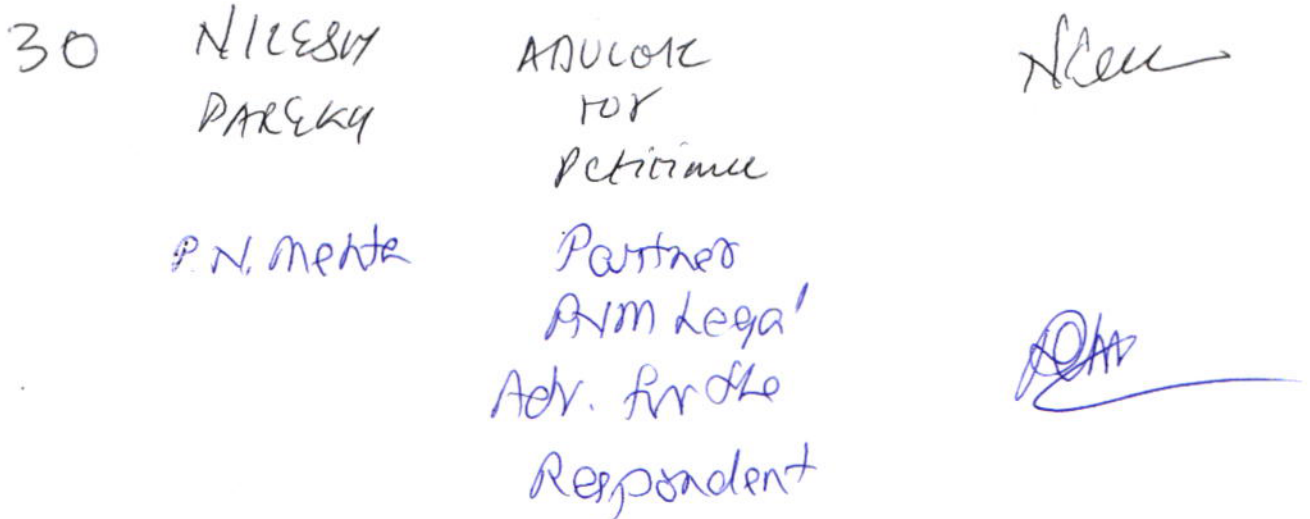 30
NILESH
PAREKH
ADVCOTE
for
Petitioner
P.N. Mehta
Partner
PNM Legal
Adv. for the
Respondent